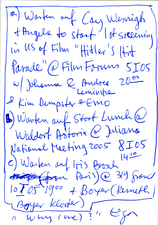 a) Warten auf Cay Wesnigk
+ Angela to start 1st screening
in US of Film "Hitler's Hit
Parade" @ Film Forum 5I05
w/ Johanna & Andrea 20:00
+ Kim Dempster & Emo
b) Warten auf Start Lunch @
Waldorf Astoria @ Juliana
National Meeting 2005 8I05
c) Warten auf Iris Bosch 14:30
(from Paris) @ 3rd floor
10I05 1900 + Boyer (Kenneth)
(Boyer Kloster)
"Why (me)?"